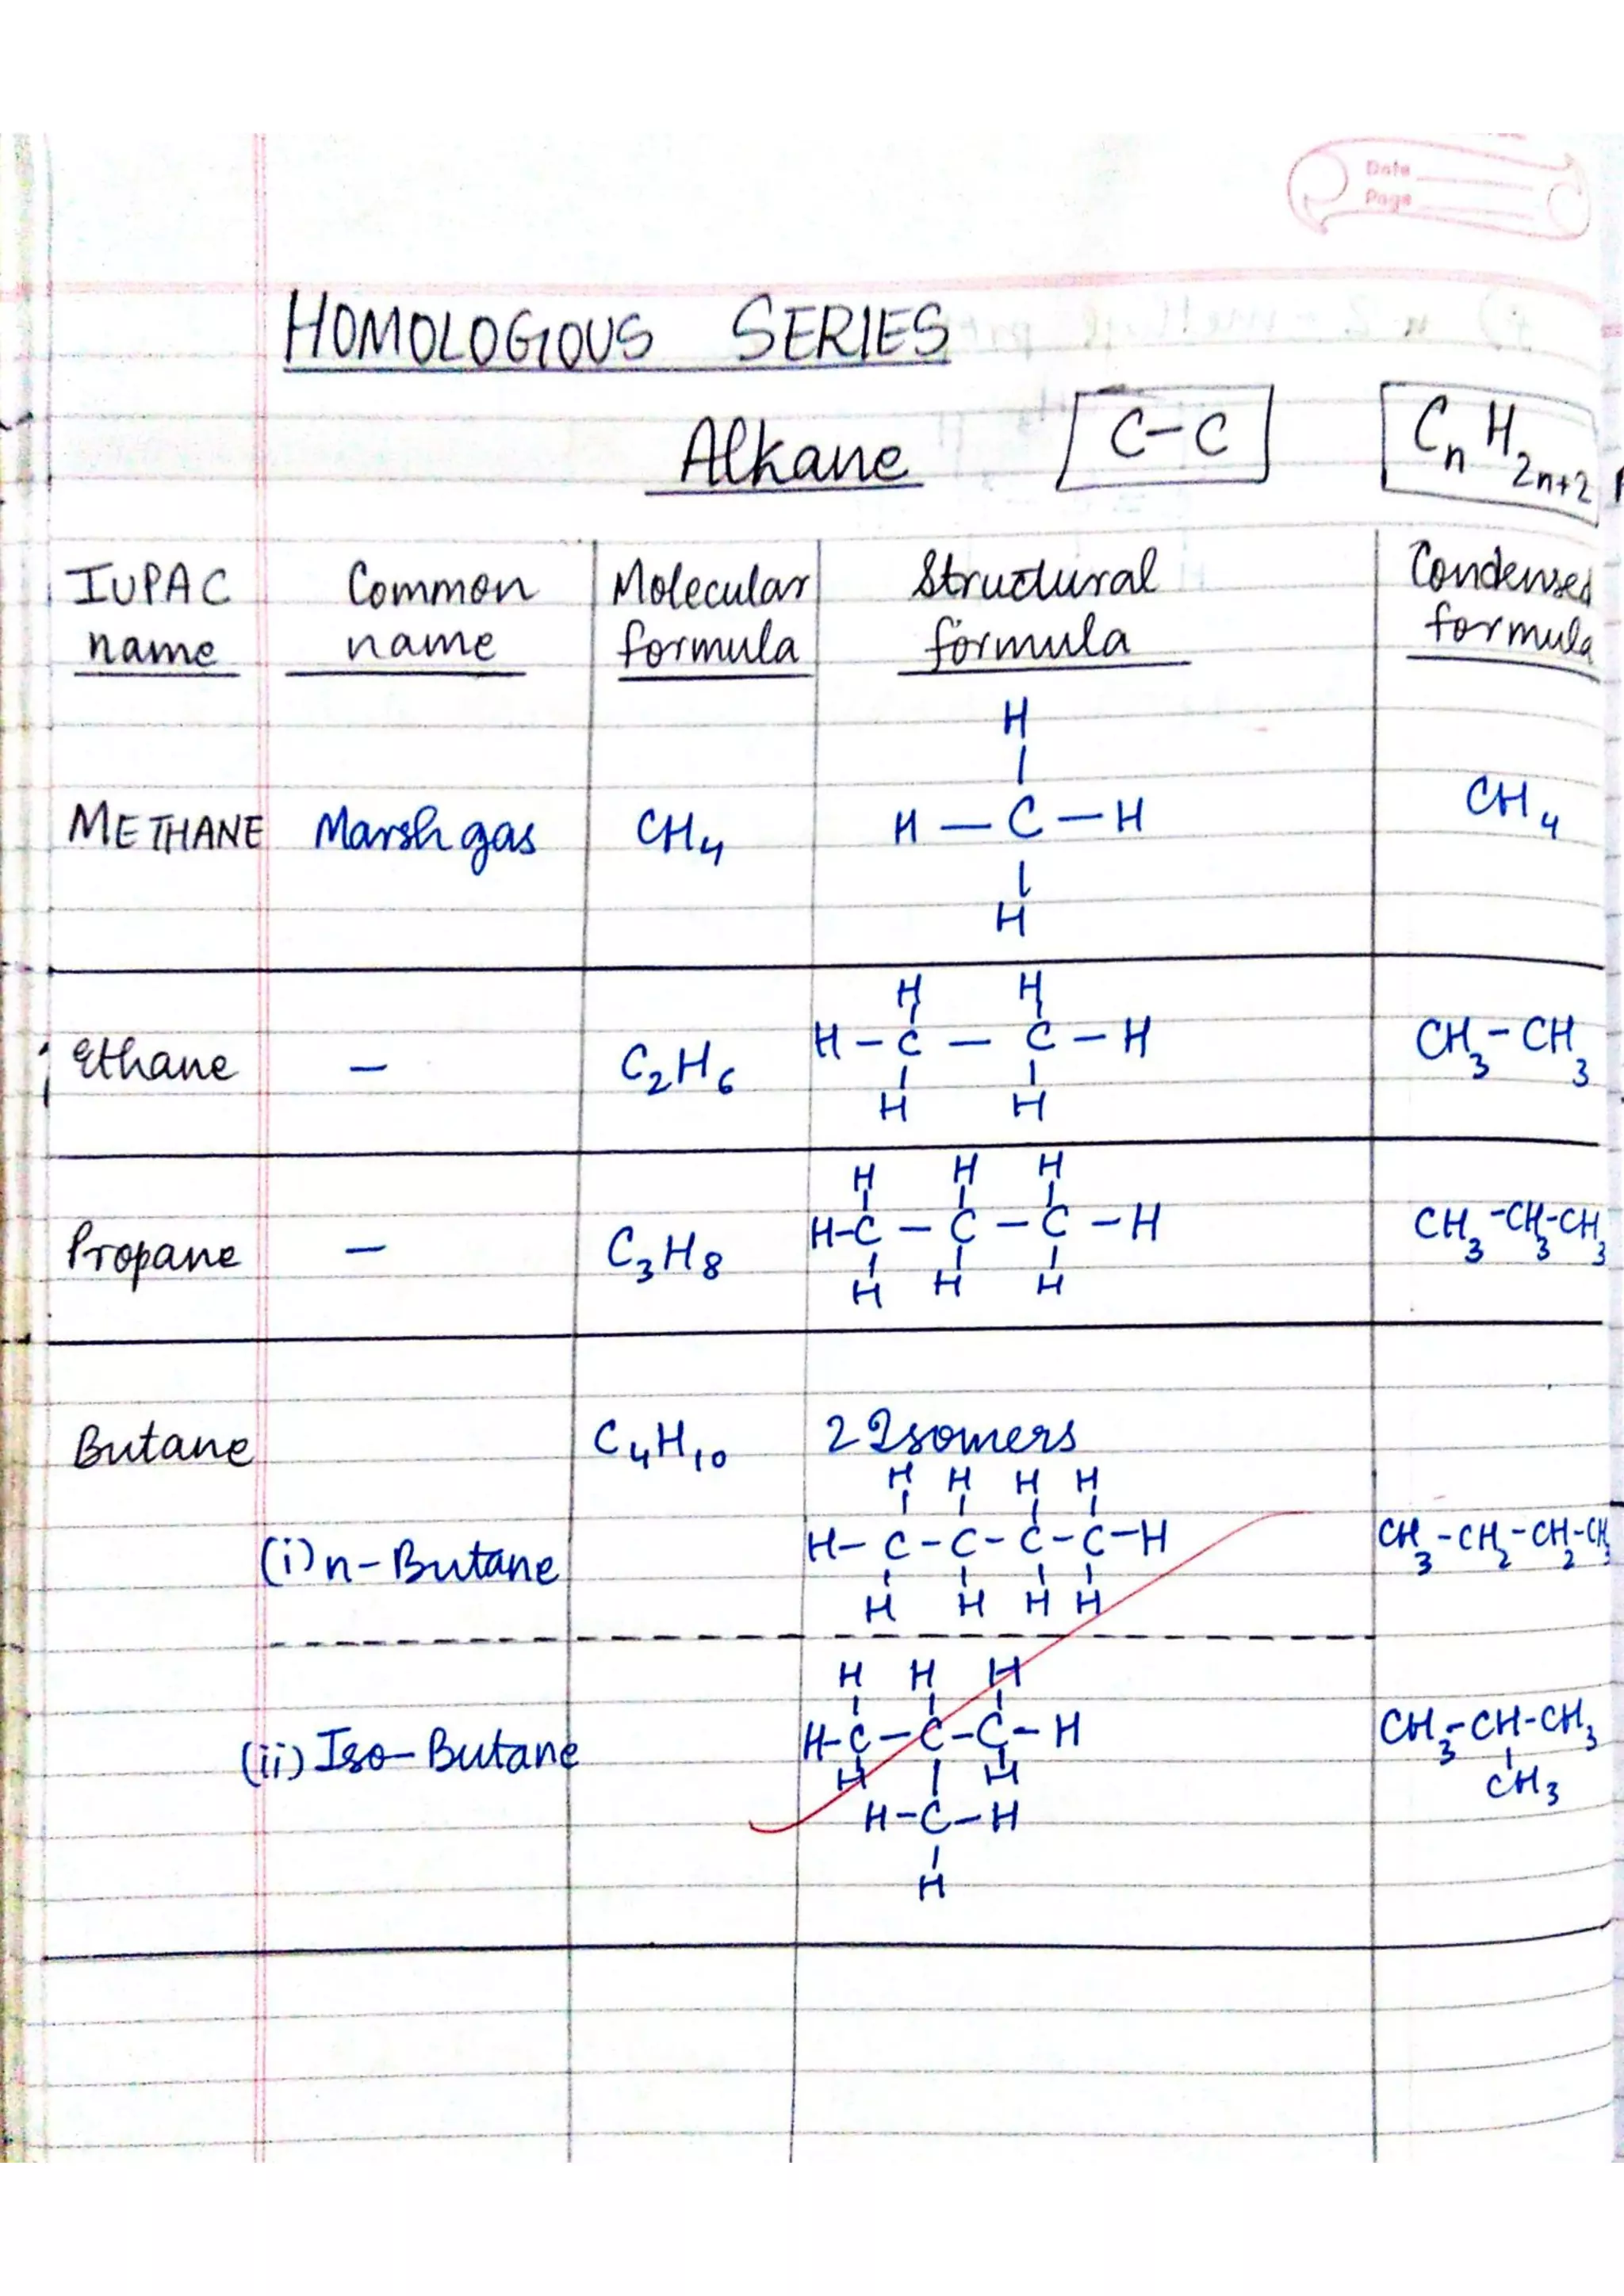 Date
Page
HOMOLOGIOUS SERIES
Alkane C-C CnH2n+2
IUPAC name Common name Molecular formula Structural formula Condensed formula
H
|
METHANE Marsh gas CH4 H — C — H CH4
|
H
H H
Ethane — C2H6 H - C — C - H CH3-CH3
| |
H H
H H H
Propane — C3H8 H-C - C - C - H CH3-CH3-CH3
| | |
H H H
Butane C4H10 2 Isomers
H H H H
| | | |
(i) n-Butane H - C - C - C - C - H CH3-CH2-CH2-CH3
| | | |
H H H H
H H H
| | |
(ii) Iso-Butane H-C - C - C - H CH3-CH-CH3
H | H |
CH3
H-C-H
|
H